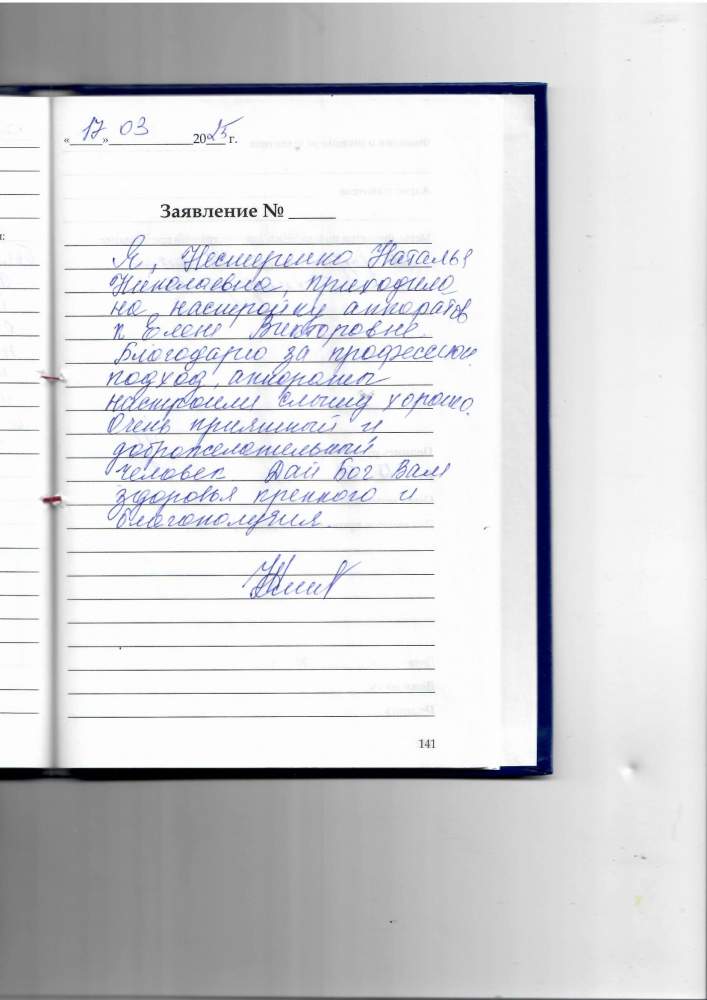 « 17 » 03 2025 г.
Заявление № _____
Я, Нестеренко Наталья
Николаевна, приходила
на настройку аппаратов
к Елене Викторовне.
Благодарю за профессион.
подход, аппараты
настроили слышу хорошо.
Очень приятный и
доброжелательный
человек. Дай Бог Вам
здоровья крепкого и
благополучия.
141